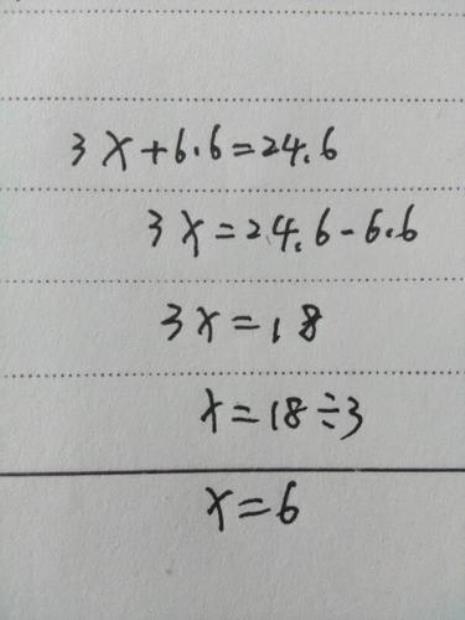 3x+6.6=24.6
3x=24.6-6.6
3x=18
x=18÷3
x=6